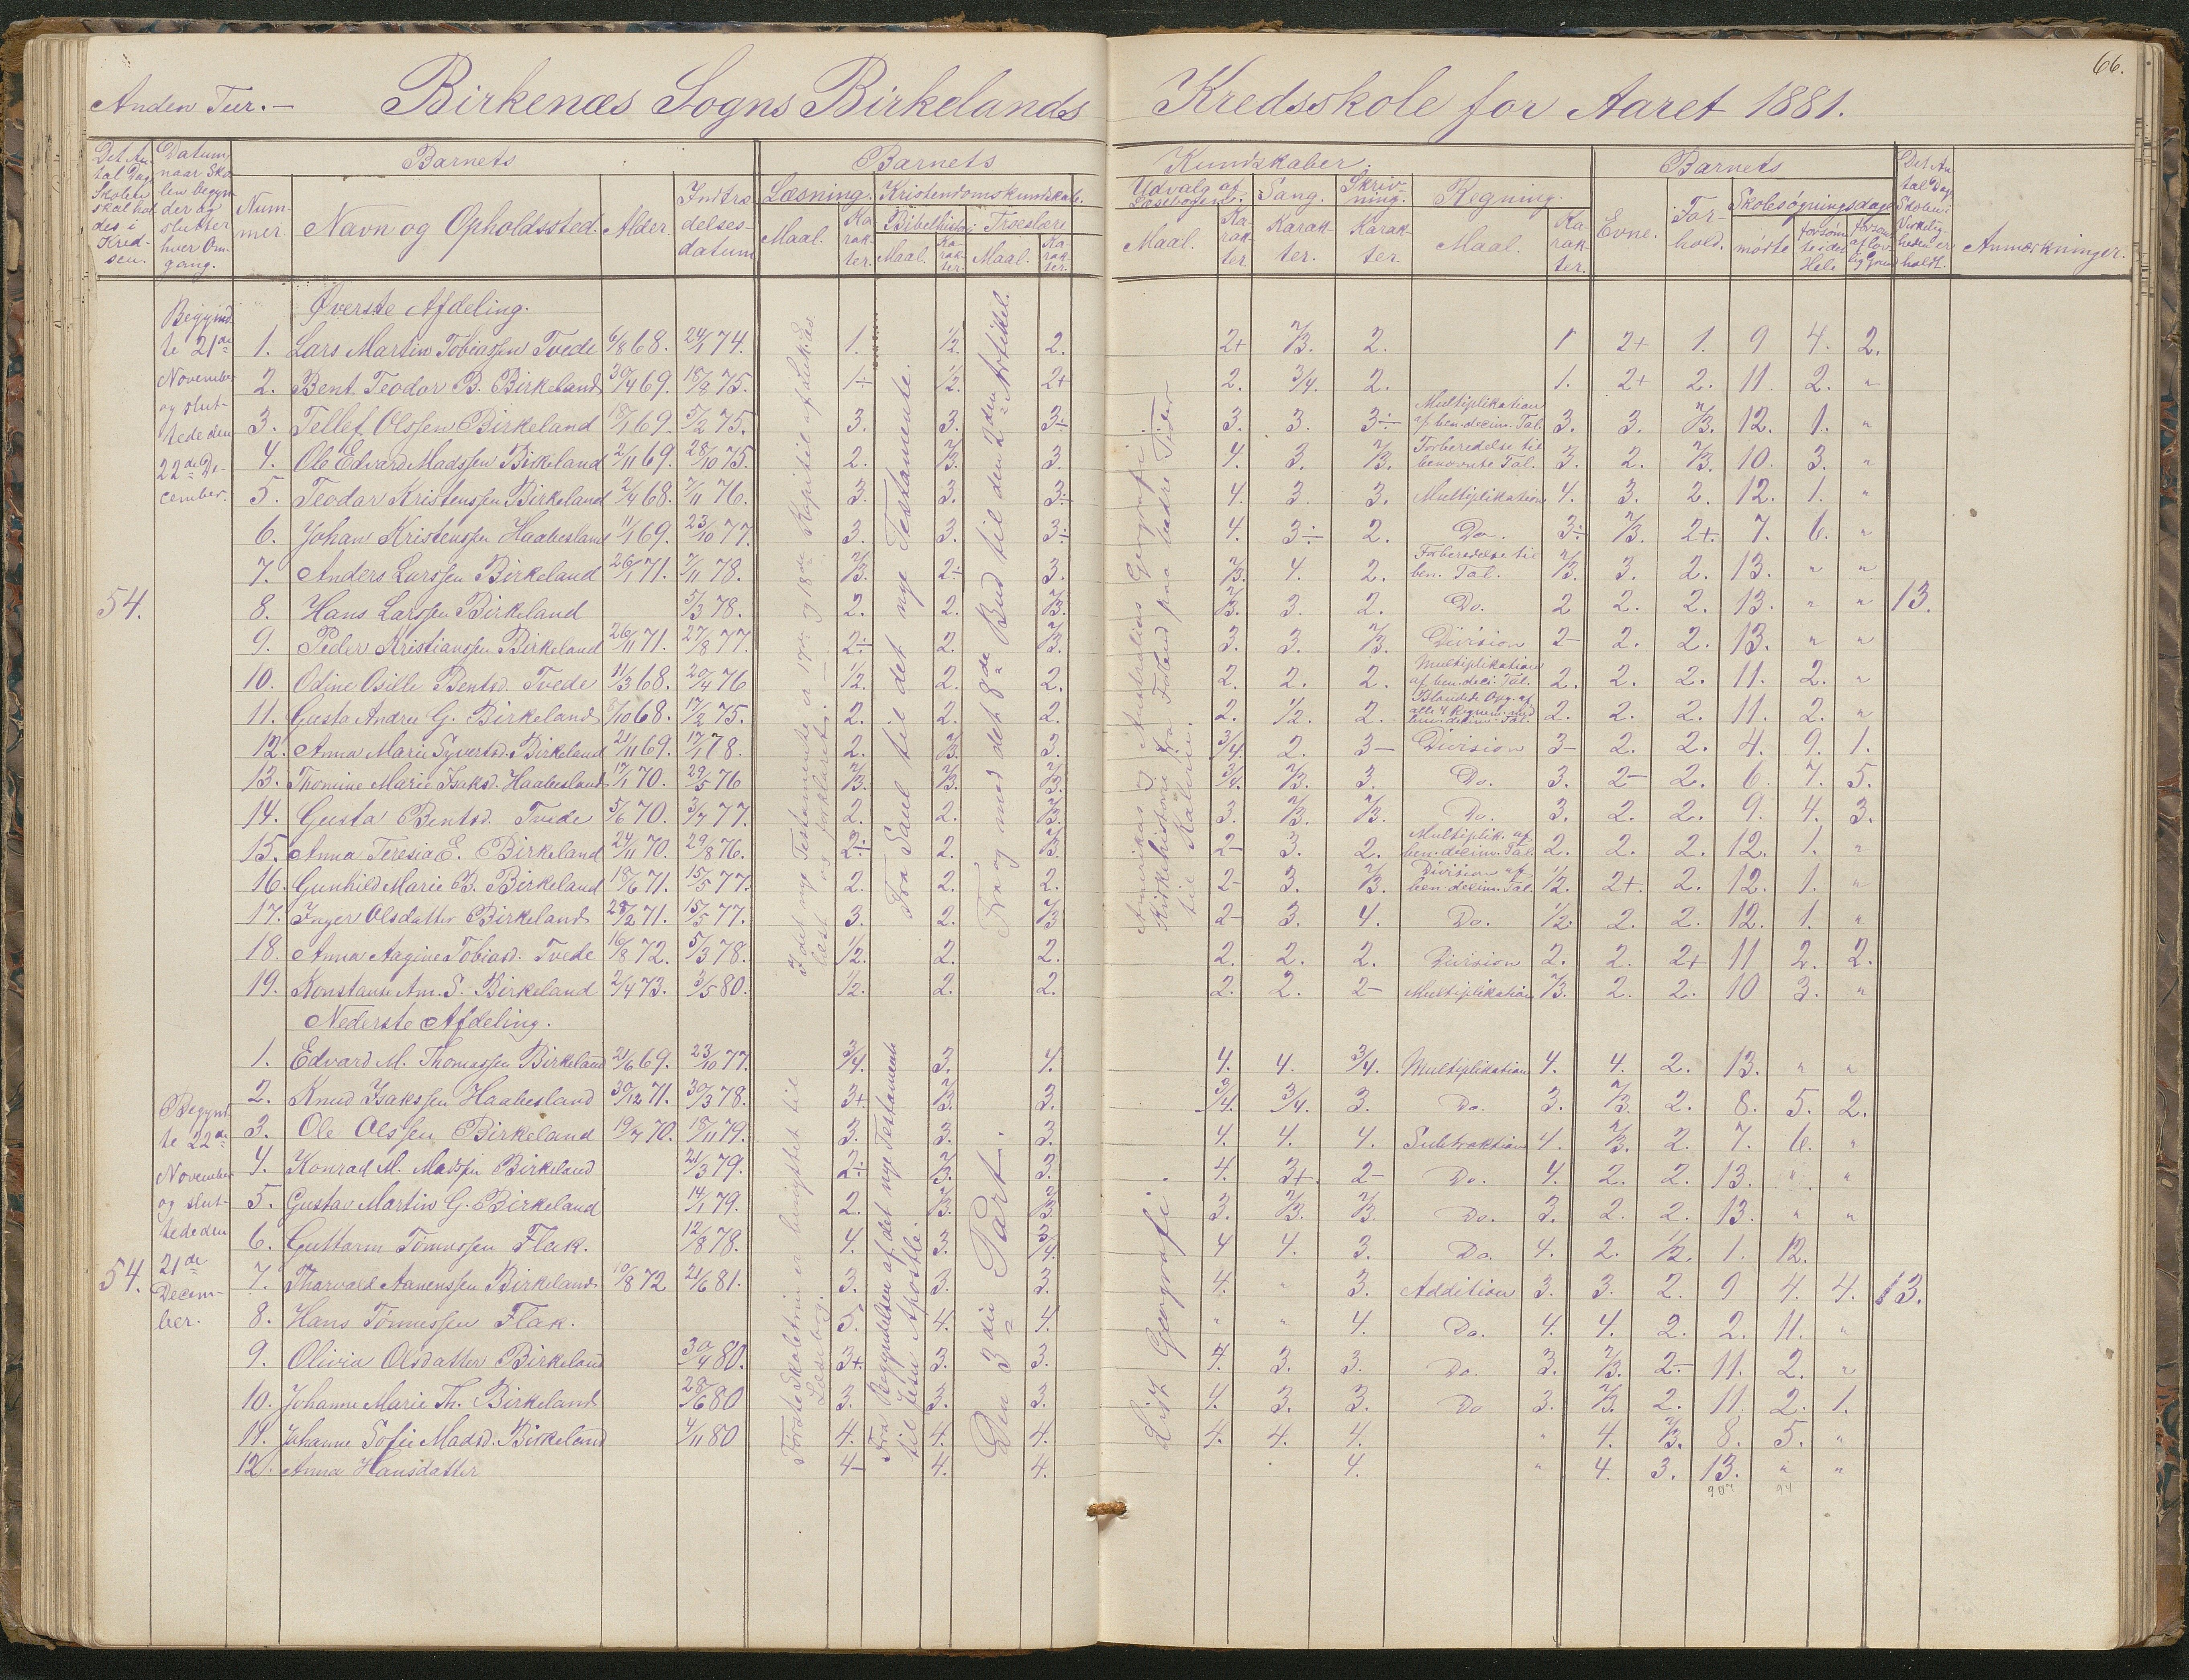 66.
Anden Tur. — Birkenæs Sogns Birkelands Kredsskole for Aaret 1881.
Det Antal Dage Skolen skal holdes i Kredsen. Datum, naar Skolen begynder og slutter hver Omgang. Barnets Barnets Kundskaber. Barnets Det Antal Dage Skolen i Virkeligheden er holdt. Anmærkninger.
Nummer. Navn og Opholdssted. Alder. Indtrædelsesdatum Læsning. Kristendomskundskab. Udvalg af Læsebogen. Sang. Skrivning. Regning. Evne. Forhold. Skolesøgningsdage
Maal. Karakter. Bibelhistorie Troeslære Maal. Karakter. Karakter. Karakter. Maal. Karakter. mødte forsømte i det Hele forsømt af lovlig Grund
Maal. Karakter. Maal. Karakter.
Øverste Afdeling.
Begyndte 21de November og sluttede den 22de December.
54.
1. Lars Martin Tobiassen Tvede 6/8 68. 24/1 74. 1. 1/2. 2. 2+ 2/3. 2. 1 2+ 1. 9 4. 2.
2. Bent Teodor B. Birkeland 30/4 69. 18/8 75. 1÷ 1/2. 2+ 2. 3/4. 2. 1. 2+ 2. 11. 2. "
3. Tellef Olssen Birkeland 18/1 69. 5/2 75. 3. 3. 3÷ 3. 3. 3÷ Multiplikation af ben. decim. Tal. 3. 3. 2/3. 12. 1. "
4. Ole Edvard Madssen Birkeland 2/11 69. 28/10 75. 2. 2/3. 3. 4. 3. 2/3. Forberedelse til benævnte Tal. 3. 2. 2/3. 10. 3. "
5. Teodor Kristenssen Birkeland 2/4 68. 7/11 76. 3. 3. 3÷ 4. 3 3. Multiplikation 4. 3. 2. 12. 1. "
6. Johan Kristenssen Haabesland 11/1 69. 23/10 77. 3. 3. 3÷ 4. 3÷ 2. Do. 3÷ 2/3. 2+. 7. 6. "
7. Anders Larssen Birkeland 26/1 71. 7/11 78. 2/3. 2÷ 3. 2/3. 4. 2. Forberedelse til ben. Tal. 2/3. 3. 2. 13. " "
8. Hans Larssen Birkeland 5/3 78. 2. 2. 2/3. 2/3. 3. 2. Do. 2 2. 2. 13. " " 13.
9. Peder Kristianssen Birkeland 26/11 71. 27/8 77. 2÷ 2. 2/3. 3. 3. 2/3. Division 2- 2. 2. 13. " "
10. Odine Osille Bentsd. Tvede 11/3 68. 20/4 76 1/2. 2. 2. 2. 2. 2. Multiplikation af ben. deci. Tal. 2. 2. 2. 11. 2. "
11. Gusta Andrea G. Birkeland 7/10 68. 17/2 75. 2. 2. 2. 2. 1/2. 2. Blandede Opg. af alle 4 Regnem. med ben. decim. Tal. 2. 2. 2. 11. 2. "
12. Anna Marie Syvertsd. Birkeland 21/11 69. 17/1 78. 2. 2/3. 3. 3/4 2. 3- Division 3- 2. 2. 4. 9. 1.
13. Thomine Marie Isaksd. Haabesland 17/1 70. 29/5 76 2/3. 2/3. 2/3. 3/4. 2/3. 3. Do. 3. 2- 2. 6. 7. 5.
14. Gusta Bentsd. Tvede 5/6 70. 3/7 77. 2. 2. 2/3. 3. 2/3. 2/3. Do. 3. 2. 2. 9. 4. 3.
15. Anna Teresia E. Birkeland 24/11 70. 29/8 76. 2÷ 2. 2/3. 2- 3. 2. Multiplik. af ben. decim. Tal. 2. 2. 2. 12. 1. "
16. Gunhild Marie B. Birkeland 18/6 71. 15/5 77. 2. 2. 2. 2- 3. 2/3. Division af ben. decim. Tal. 1/2. 2+. 2. 12. 1. "
17. Inger Olsdatter Birkeland 28/2 71. 15/5 77. 3. 2. 2/3 2- 3. 4. Do. 1/2. 2. 2. 12. 1. "
18. Anna Aagine Tobiasd. Tvede 16/8 72. 5/3 78. 1/2. 2. 2. 2. 2. 2. Division 2. 2. 2+ 11 2. 2.
19. Konstanse Am. S. Birkeland 2/4 73. 3/5 80. 1/2. 2. 2. 2. 2. 2- Multiplikation 2/3. 2. 2. 10 3. "
I det nye Testamente er 17de og 18de Kapitel af Luk. Ev. læst og forklaret.
Fra Saul til det nye Testamente.
Fra og med det 8de Bud til den 2den Artikel.
Amerikas og Australiens Geografi.
Kirkehistorie fra Fædrene paa bedre Tider til
Nederste Afdeling.
Begyndte 22de November og sluttede den 21de December.
54.
1. Edvard M. Thomassen Birkeland 21/6 69. 23/10 77. 3/4. 3. 4. 4. 4. 3/4. Multiplikation 4. 4. 2. 13. " "
2. Knud Isakssen Haabesland 30/12 71. 30/3 78. 3+ 2/3. 3. 3/4. 3/4. 3. Do. 3. 2/3. 2. 8. 5. 2.
3. Ole Olssen Birkeland 19/7 70. 18/11 79. 3. 3. 3. 4. 4. 4. Subtraktion 4. 2/3. 2. 7. 6. "
4. Konrad M. Madssen Birkeland 21/3 79. 2÷ 2/3. 3. 4. 3+. 2- Do. 4. 2. 2. 13. " "
5. Gustav Martin G. Birkeland 14/1 79. 2. 2/3. 2/3. 3. 2/3. 2/3. Do. 3. 2. 2. 13. " "
6. Guttorm Tømessen Flak. 12/8 78. 4. 3. 3/4. 4 4. 3. Do. 4. 2. 1/2. 1. 12.
7. Tharvald Aanenssen Birkeland. 10/8 72 21/6 81. 3. 3. 3. 4. " 3. Addition 3. 3. 2. 9 4. 4. 13.
8. Hans Tønnessen Flak. 5. 4. 4. " " 4. Do. 4. 4. 2. 2. 11. "
9. Olivia Olsdatter Birkeland 30/4 80. 3+ 3. 3. 4. 3. 3. Do. 3. 2/3. 2- 11. 2. "
10. Johanne Marie Th. Birkeland 28/6 80 3. 3. 3. 4. 3. 3. Do 3. 2/3. 2. 11. 2. 1.
11. Johanne Sofie Madsd. Birkeland 4/11 80 4. 4. 4. 4. 4. 4. " 4. 2/3. 8. 5. "
12. Anna Hansdatter 4- 4. 4. 4. " 4. 3. 13. " "
307 94
Første Skoletrin er benyttet til Læsebog.
Fra Begyndelsen af det nye Testamente til Jesu Apostle
Den 3die Part.
Lidt Geografi.